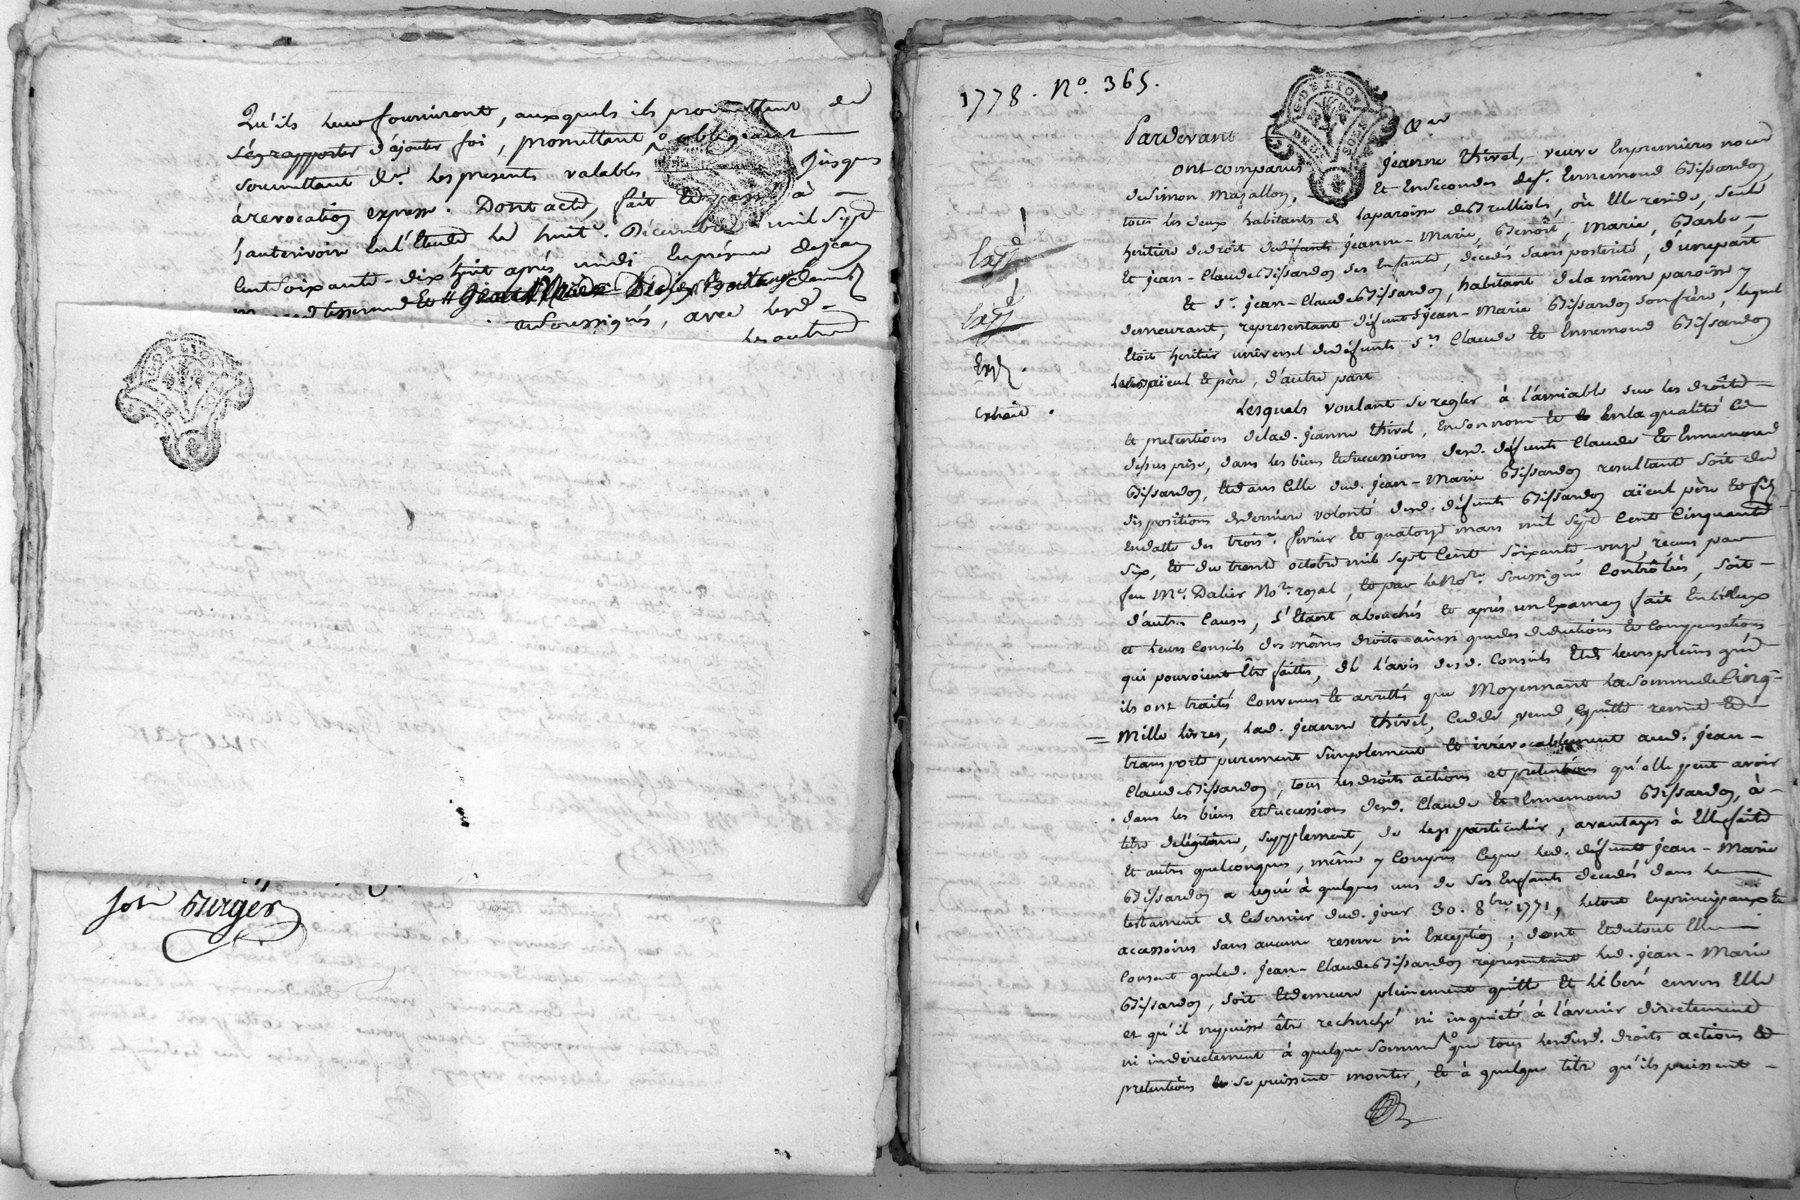 Qu'ils leur fourniront, auxquels ils promettent de
s'en rapporter & d'ajouter foi, promettant obligeant
soumettant &a. les presents valables jusques
à revocation expresse. Dont acte, fait et passé à
hauterivoire en l'Etude le huit Decembre mil sept
cent soixante-dix huit après midi en présence de jean
soussignés, avec led.
les autres
G. DE LYON
jos Berger
1778. N.º 365.
G. DE LYON
Pardevant &a
ont comparus jeanne thivel, veuve en premieres noces
de simon Mazallon, et en secondes de s.r Ennemond Bissardon,
tous les deux habitants de la paroisse de Brulliols, où Elle reside, seule
heritiere de droit de jeanne-Marie, Benoît, Marie, Barbe
et jean-Claude Bissardon ses Enfants, décedés sans posterité, d'une part
Et s.r jean-Claude Bissardon, habitant de la même paroisse y
demeurant, representant défunt s.r jean-Marie Bissardon son frère, lequel
Etoit heritier universel de défunts s.rs Claude et Ennemond Bissardon
ses aïeul et père, d'autre part
Exp.
Exp.
Exp.
Extrait.
Lesquels voulant se regler à l'amiable sur les droits
et pretentions de lad. jeanne thivel, en son nom et en la qualité ci
dessus prise, dans les biens et successions desd. défunts Claude et Ennemond
Bissardon, et dans celle dud. jean-Marie Bissardon resultant soit des
dispositions de derniere volonté desd. défunts Bissardon aïeul père et fils
en datte des trois fevrier et quatorze mars mil sept cent cinquante
six, et du trente octobre mil sept cent soixante-onze, recus par
feu M.e Dalier No.re royal, et par le No.re soussigné contrôlés, soit
d'autres causes, s'étant abouchés et après un Examen fait entr'eux
et leurs conseils des mêmes droits ainsi que des deductions et compensations
qui pouvoient être faittes, de l'avis desd. conseils et de leurs pleins gré
ils ont traités convenus et arrettés que Moyennant la somme de Cinq
= Mille livres, lad. jeanne thivel, cedde, vend, quitte remet et
transporte purement simplement et irrévocablement aud. jean-
Claude Bissardon, tous les droits actions et pretentions qu'elle peut avoir
dans les biens et successions desd. Claude et Ennemond Bissardon, à
titre de légitime, supplement, de legs particulier, avantages à Elle faits
et autres quelconques, même y compris ce que led. défunt jean-Marie
Bissardon a legué à quelques uns de ses Enfants decedés dans le
testament de ce dernier dud. jour 30. 8.bre 1771, le tout en principaux et
accessoires sans aucune reserve ni Exception; dont et de tout Elle
consent que led. jean-Claude Bissardon representant led. jean-Marie
Bissardon, soit et demeure pleinement quitte et libéré envers Elle
et qu'il ne puisse être recherché ni inquieté à l'avenir directement
ni indirectement à quelque somme que tous lesusd. droits actions et
pretentions se puissent monter, et à quelque titre qu'ils puissent